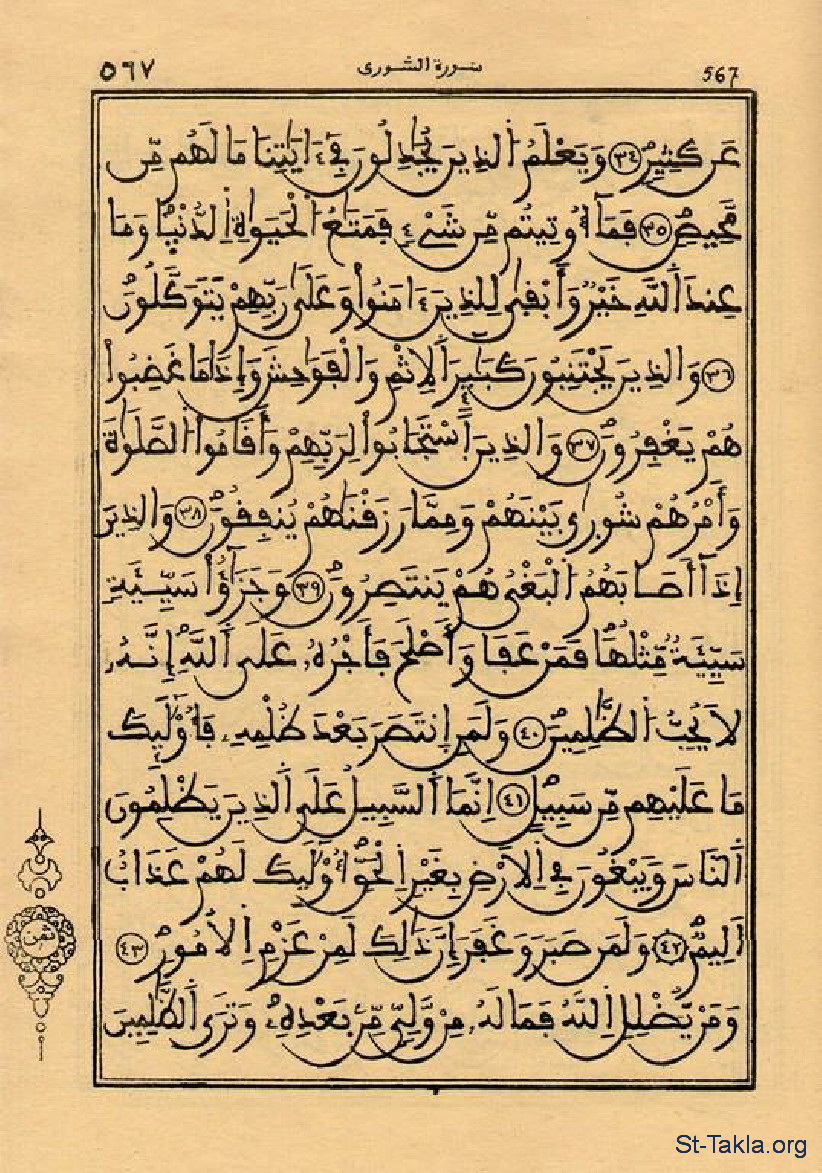 ٥٦٧ سورة الشورى 567
عَن كَثِيرٍ ٣٤ وَيَعْلَمُ الذِينَ يُجَٰدِلُونَ فِےٓ ءَايَٰتِنَا مَا لَهُم مِّن
مَّحِيصٍ ٣٥ فَمَآ أُوتِيتُم مِّن شَےْءٍ فَمَتَٰعُ الْحَيَوٰةِ الدُّنْيَا وَمَا
عِندَ اَللَّهِ خَيْرٌ وَأَبْقَىٰ لِلذِينَ ءَامَنُواْ وَعَلَىٰ رَبِّهِمْ يَتَوَكَّلُونَ
٣٦ وَالذِينَ يَجْتَنِبُونَ كَبَٰٓئِرَ اَلِاثْمِ وَالْفَوَٰحِشَ وَإِذَا مَا غَضِبُواْ
هُمْ يَغْفِرُونَ ٣٧ وَالذِينَ اَسْتَجَابُواْ لِرَبِّهِمْ وَأَقَامُواْ الصَّلَوٰةَ
وَأَمْرُهُمْ شُورَىٰ بَيْنَهُمْ وَمِمَّا رَزَقْنَٰهُمْ يُنفِقُونَ ٣٨ وَالذِينَ
إِذَآ أَصَابَهُمُ الْبَغْىُ هُمْ يَنتَصِرُونَ ٣٩ وَجَزَٰٓؤُاْ سَيِّئَةٍ
سَيِّئَةٌ مِّثْلُهَا فَمَنْ عَفَا وَأَصْلَحَ فَأَجْرُهُۥ عَلَى اَللَّهِ إِنَّهُۥ
لَا يُحِبُّ الظَّٰلِمِينَ ٤٠ وَلَمَنِ اِنتَصَرَ بَعْدَ ظُلْمِهِۦ فَأُوْلَٰٓئِكَ
مَا عَلَيْهِم مِّن سَبِيلٍ ٤١ اِنَّمَا اَلسَّبِيلُ عَلَى اَلذِينَ يَظْلِمُونَ
اَلنَّاسَ وَيَبْغُونَ فِے اِلَارْضِ بِغَيْرِ اِلْحَقِّ أُوْلَٰٓئِكَ لَهُمْ عَذَابٌ
اَلِيمٌ ٤٢ وَلَمَن صَبَرَ وَغَفَرَ إِنَّ ذَٰلِكَ لَمِنْ عَزْمِ اِلُامُورِ ٤٣
وَمَنْ يُّضْلِلِ اِللَّهُ فَمَا لَهُۥ مِنْ وَّلِىٍّ مِّنۢ بَعْدِهِۦ وَتَرَى اَلظَّٰلِمِينَ
ثمن
St-Takla.org